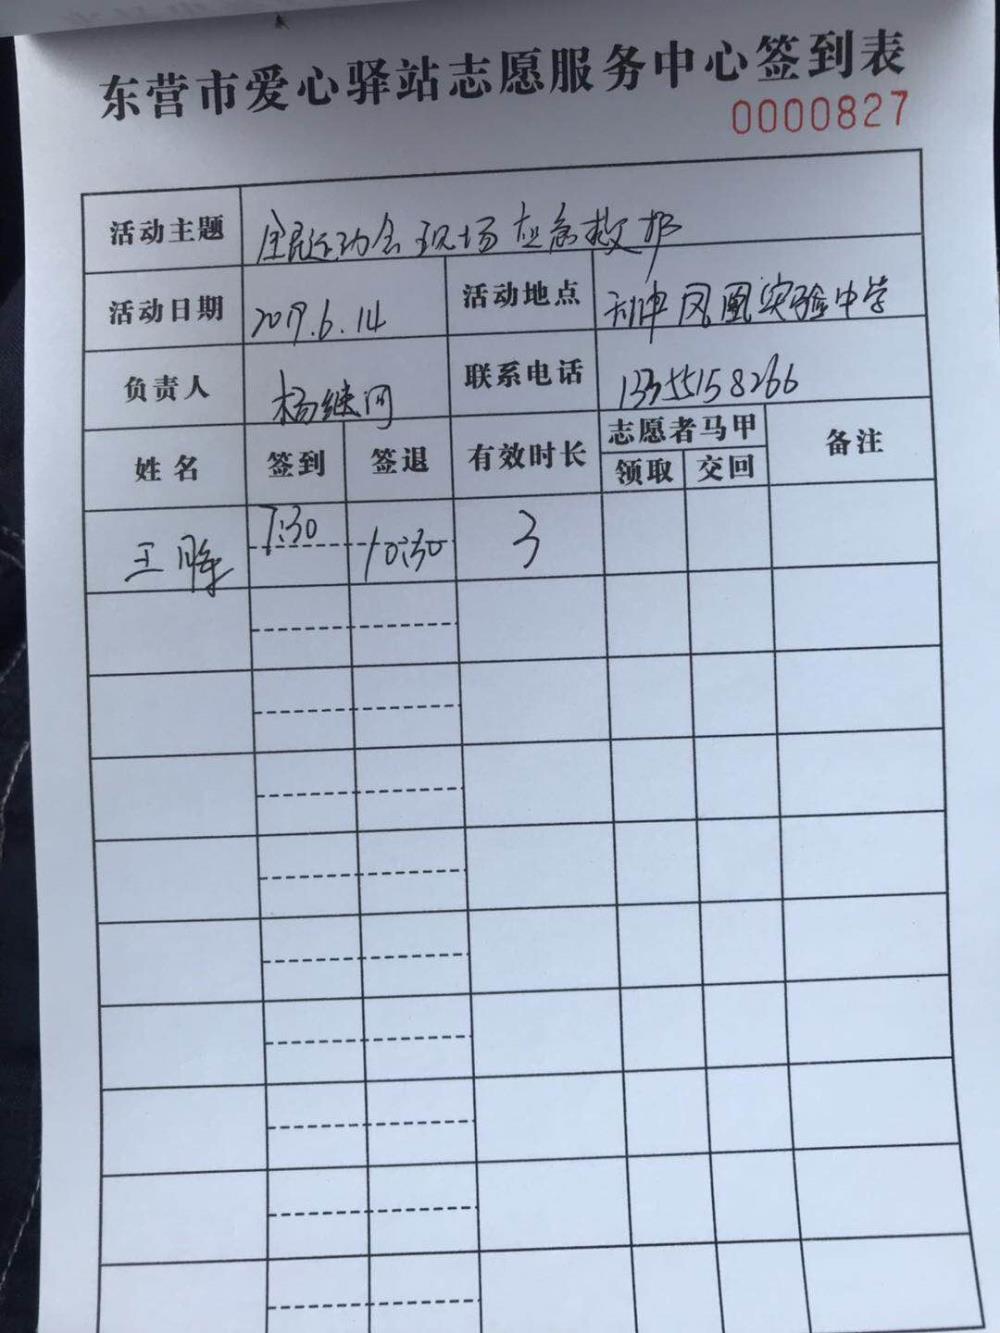 东营市爱心驿站志愿服务中心签到表
0000827
活动主题 全民运动会现场应急救护
活动日期 2019.6.14 活动地点 利津凤凰实验中学
负责人 杨继同 联系电话 13355158266
姓名 签到 签退 有效时长 志愿者马甲 备注
领取 交回
王 7:30 10:30 3